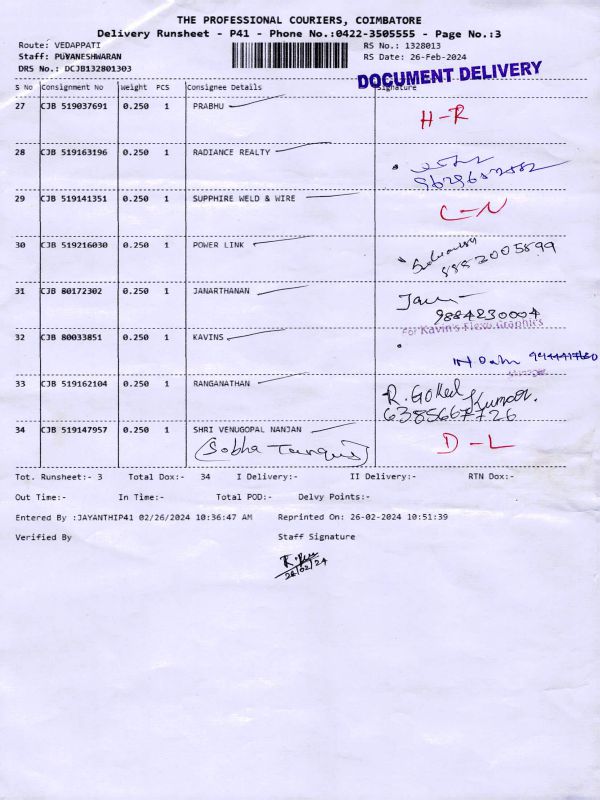 THE PROFESSIONAL COURIERS, COIMBATORE
Delivery Runsheet - P41 - Phone No.:0422-3505555 - Page No.:3
Route: VEDAPPATI RS No.: 1328013
Staff: PUVANESHWARAN RS Date: 26-Feb-2024
DRS No.: DCJB132801303
DOCUMENT DELIVERY
S No Consignment No Weight PCS Consignee Details Signature
27 CJB 519037691 0.250 1 PRABHU H-R
28 CJB 519163196 0.250 1 RADIANCE REALTY
29 CJB 519141351 0.250 1 SUPPHIRE WELD & WIRE C-N
30 CJB 519216030 0.250 1 POWER LINK
31 CJB 80172302 0.250 1 JANARTHANAN
9884230004
For Kavin's Flexo Graphics
32 CJB 80033851 0.250 1 KAVINS
33 CJB 519162104 0.250 1 RANGANATHAN R. Gokul Kumar.
6385667726
34 CJB 519147957 0.250 1 SHRI VENUGOPAL NANJAN D-L
(Sobha
Tot. Runsheet:- 3 Total Dox:- 34 I Delivery:- II Delivery:- RTN Dox:-
Out Time:- In Time:- Total POD:- Delvy Points:-
Entered By :JAYANTHIP41 02/26/2024 10:36:47 AM Reprinted On: 26-02-2024 10:51:39
Verified By Staff Signature
26/02/24